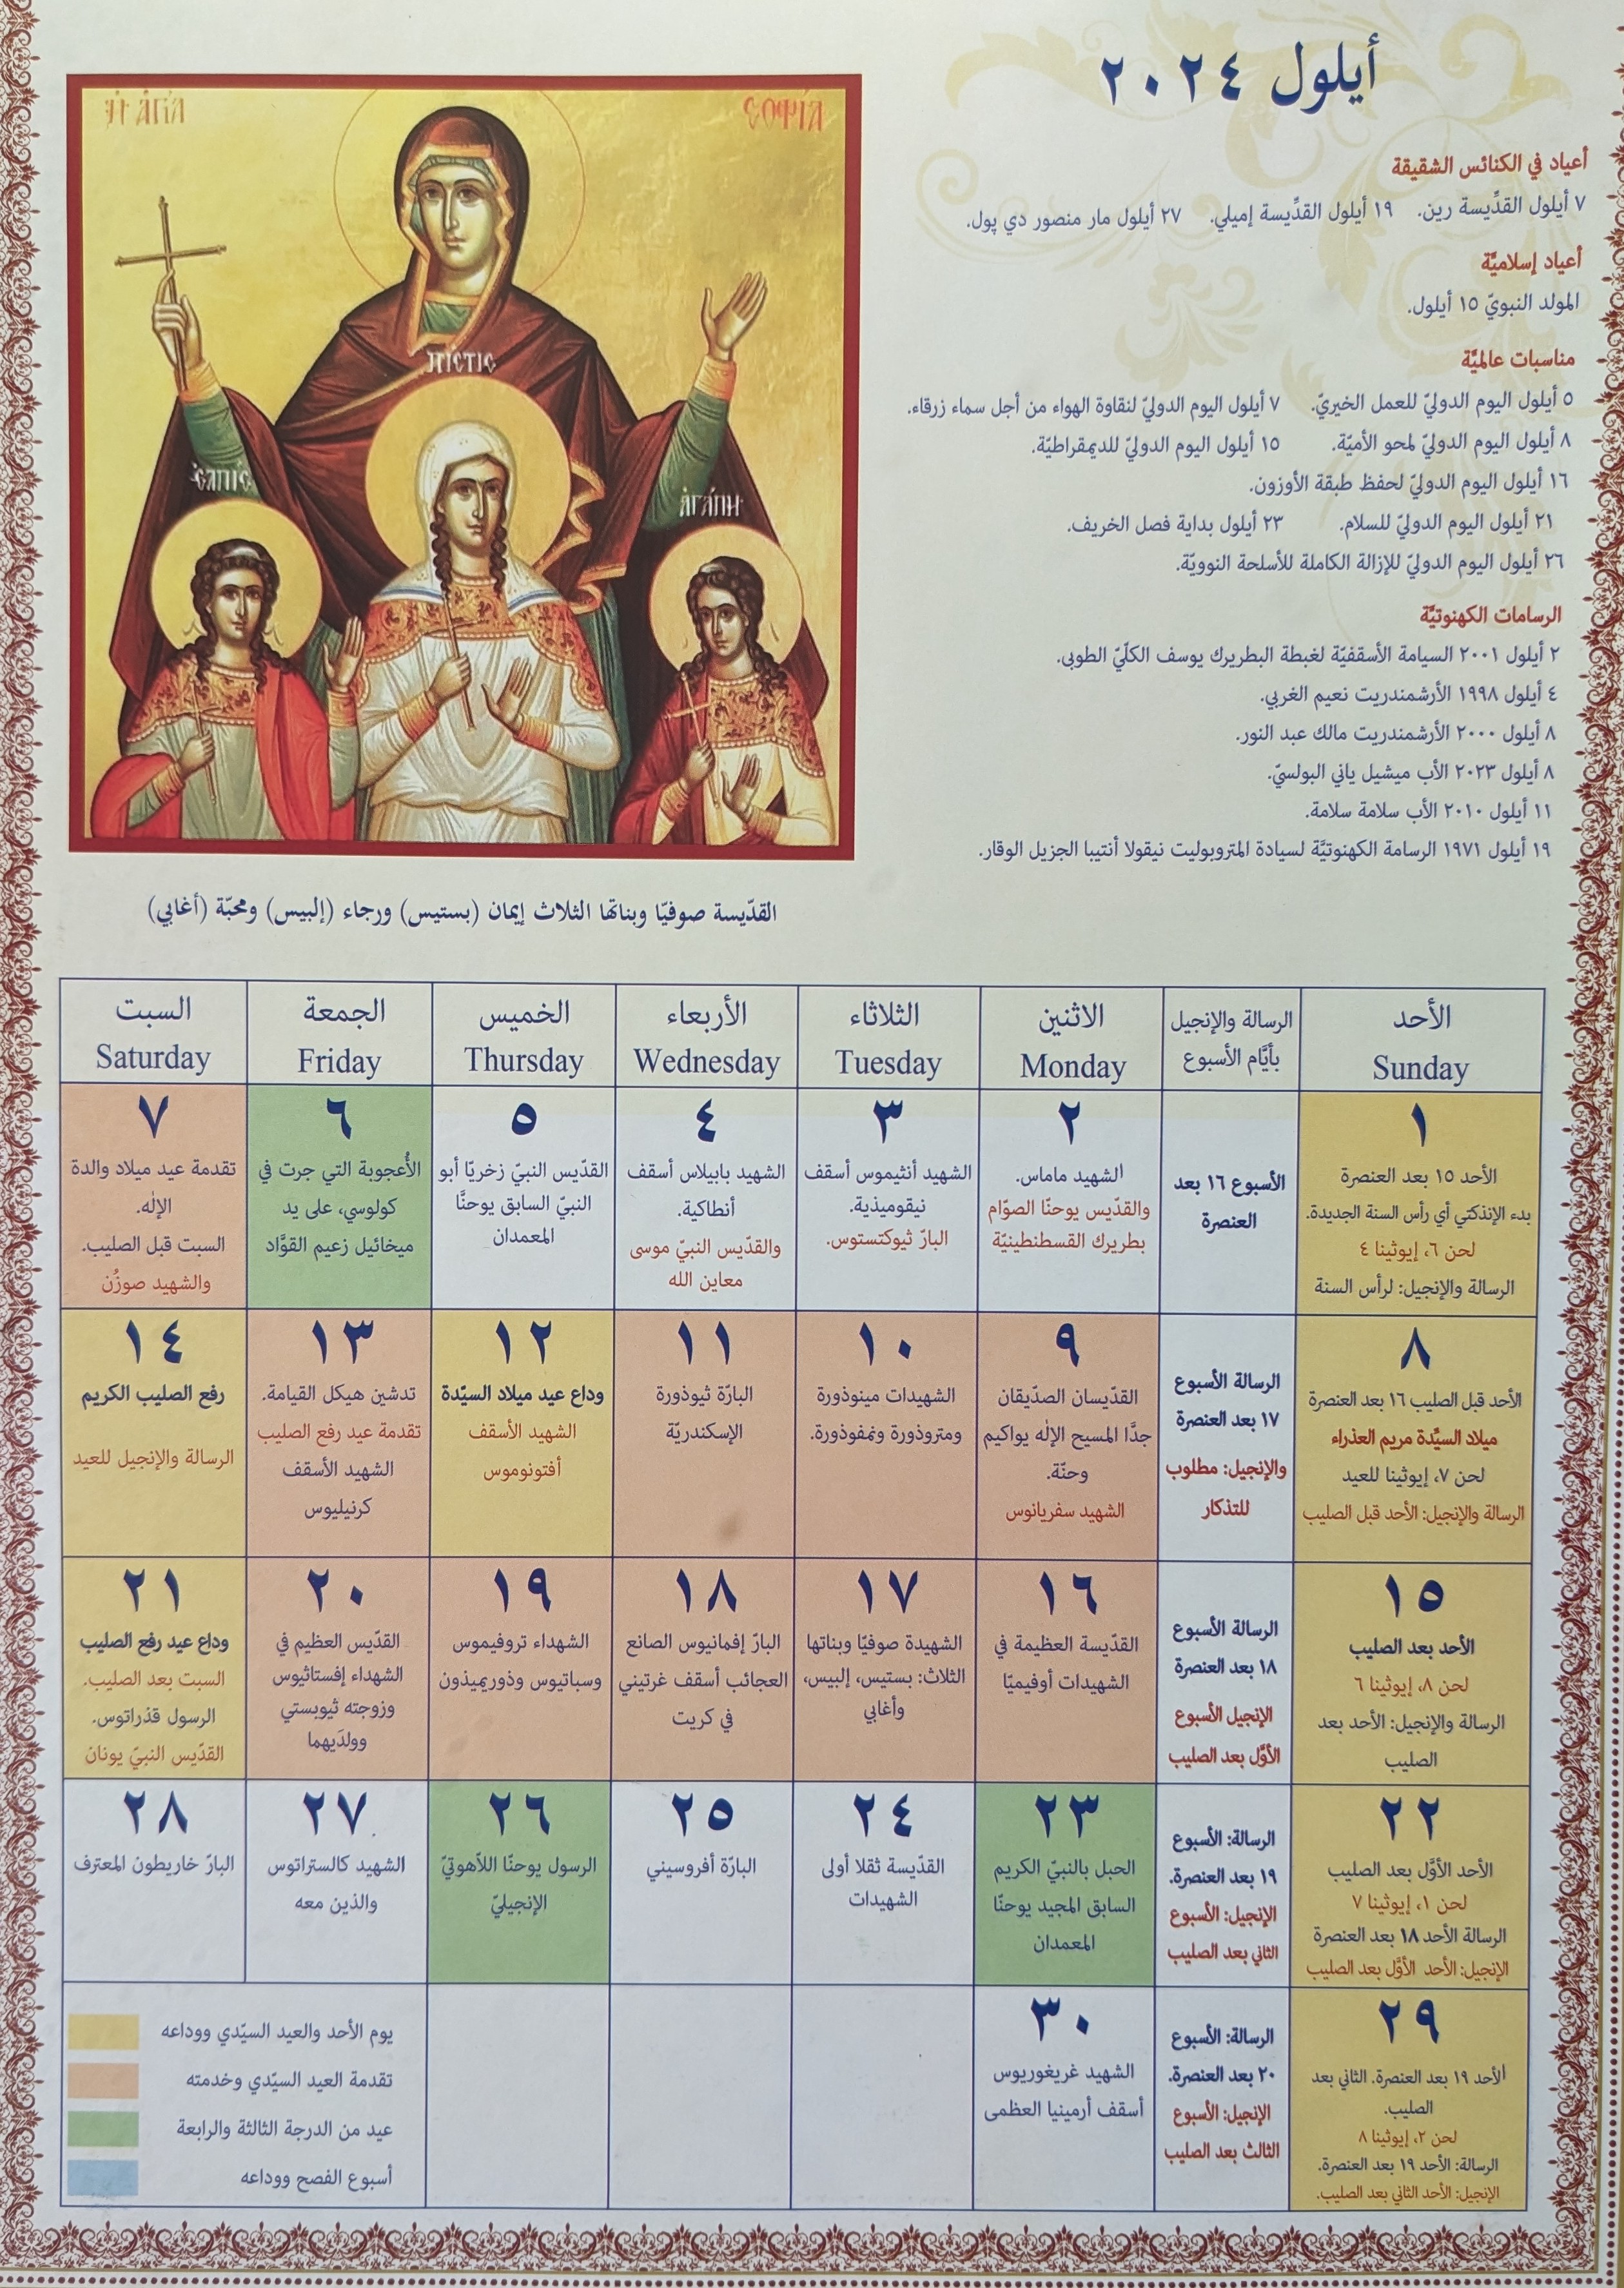 أيلول ٢٠٢٤
أعياد في الكنائس الشقيقة
٧ أيلول القدِّيسة رين. ١٩ أيلول القدِّيسة إميلي. ٢٧ أيلول مار منصور دي پول.
أعياد إسلاميَّة
المولد النبويّ ١٥ أيلول.
مناسبات عالميَّة
٥ أيلول اليوم الدوليّ للعمل الخيريّ. ٧ أيلول اليوم الدوليّ لنقاوة الهواء من أجل سماء زرقاء.
٨ أيلول اليوم الدوليّ لمحو الأميّة. ١٥ أيلول اليوم الدوليّ للديمقراطيّة.
١٦ أيلول اليوم الدوليّ لحفظ طبقة الأوزون.
٢١ أيلول اليوم الدوليّ للسلام. ٢٣ أيلول بداية فصل الخريف.
٢٦ أيلول اليوم الدوليّ للإزالة الكاملة للأسلحة النوويّة.
الرسامات الكهنوتيَّة
٢ أيلول ٢٠٠١ السيامة الأسقفيّة لغبطة البطريرك يوسف الكلّيّ الطوبى.
٤ أيلول ١٩٩٨ الأرشمندريت نعيم الغربي.
٨ أيلول ٢٠٠٠ الأرشمندريت مالك عبد النور.
٨ أيلول ٢٠٢٣ الأب ميشيل ياني البولسيّ.
١١ أيلول ٢٠١٠ الأب سلامة سلامة.
١٩ أيلول ١٩٧١ الرسامة الكهنوتيَّة لسيادة المتروبوليت نيقولا أنتيبا الجزيل الوقار.
Ἡ ἉΓΊΑ
CΟΦΊΑ
ΠΙCΤΙC
ἘΛΠΙC
ἈΓΆΠΗ
القدّيسة صوفيّا وبناتها الثلاث إيمان (بستيس) ورجاء (إلبيس) ومحبّة (أغابي)
الأحد
Sunday
الرسالة والإنجيل
بأيَّام الأسبوع
الاثنين
Monday
الثلاثاء
Tuesday
الأربعاء
Wednesday
الخميس
Thursday
الجمعة
Friday
السبت
Saturday
١
الأحد ١٥ بعد العنصرة
بدء الإنذكتي أي رأس السنة الجديدة.
لحن ٦، إيوثينا ٤
الرسالة والإنجيل: لرأس السنة
الأسبوع ١٦ بعد
العنصرة
٢
الشهيد ماماس.
والقدّيس يوحنّا الصوّام
بطريرك القسطنطينيّة
٣
الشهيد أنثيموس أسقف
نيقوميذية.
البارّ ثيوكتستوس.
٤
الشهيد بابيلاس أسقف
أنطاكية.
والقدّيس النبيّ موسى
معاين الله
٥
القدّيس النبيّ زخريّا أبو
النبيّ السابق يوحنَّا
المعمدان
٦
الأُعجوبة التي جرت في
كولوسي، على يد
ميخائيل زعيم القوَّاد
٧
تقدمة عيد ميلاد والدة
الإله.
السبت قبل الصليب.
والشهيد صوزُن
٨
الأحد قبل الصليب ١٦ بعد العنصرة
ميلاد السيِّدة مريم العذراء
لحن ٧، إيوثينا للعيد
الرسالة والإنجيل: الأحد قبل الصليب
الرسالة الأسبوع
١٧ بعد العنصرة
والإنجيل: مطلوب
للتذكار
٩
القدّيسان الصدّيقان
جدَّا المسيح الإله يواكيم
وحنّة.
الشهيد سفريانوس
١٠
الشهيدات مينوذورة
ومتروذورة ونمفوذورة.
١١
البارّة ثيوذورة
الإسكندريّة
١٢
وداع عيد ميلاد السيّدة
الشهيد الأسقف
أفتونوموس
١٣
تدشين هيكل القيامة.
تقدمة عيد رفع الصليب
الشهيد الأسقف
كرنيليوس
١٤
رفع الصليب الكريم
الرسالة والإنجيل للعيد
١٥
الأحد بعد الصليب
لحن ٨، إيوثينا ٦
الرسالة والإنجيل: الأحد بعد
الصليب
الرسالة الأسبوع
١٨ بعد العنصرة
الإنجيل الأسبوع
الأوَّل بعد الصليب
١٦
القدّيسة العظيمة في
الشهيدات أوفيميّا
١٧
الشهيدة صوفيّا وبناتها
الثلاث: بستيس، إلبيس،
وأغابي
١٨
البارّ إفمانيوس الصانع
العجائب أسقف غرتيني
في كريت
١٩
الشهداء تروفيموس
وسباتيوس وذوريميذون
٢٠
القدّيس العظيم في
الشهداء إفستاثيوس
وزوجته ثيوبستي
وولدَيهما
٢١
وداع عيد رفع الصليب
السبت بعد الصليب.
الرسول قذراتوس.
القدّيس النبيّ يونان
٢٢
الأحد الأوَّل بعد الصليب
لحن ١، إيوثينا ٧
الرسالة الأحد ١٨ بعد العنصرة
الإنجيل: الأحد الأوَّل بعد الصليب
الرسالة: الأسبوع
١٩ بعد العنصرة.
الإنجيل: الأسبوع
الثاني بعد الصليب
٢٣
الحبل بالنبيّ الكريم
السابق المجيد يوحنّا
المعمدان
٢٤
القدّيسة ثقلا أولى
الشهيدات
٢٥
البارّة أفروسيني
٢٦
الرسول يوحنّا اللاّهوتيّ
الإنجيليّ
٢٧
الشهيد كالستراتوس
والذين معه
٢٨
البارّ خاريطون المعترف
٢٩
الأحد ١٩ بعد العنصرة. الثاني بعد
الصليب.
لحن ٢، إيوثينا ٨
الرسالة: الأحد ١٩ بعد العنصرة.
الإنجيل: الأحد الثاني بعد الصليب.
الرسالة: الأسبوع
٢٠ بعد العنصرة.
الإنجيل: الأسبوع
الثالث بعد الصليب
٣٠
الشهيد غريغوريوس
أسقف أرمينيا العظمى
يوم الأحد والعيد السيّدي ووداعه
تقدمة العيد السيّدي وخدمته
عيد من الدرجة الثالثة والرابعة
أسبوع الفصح ووداعه